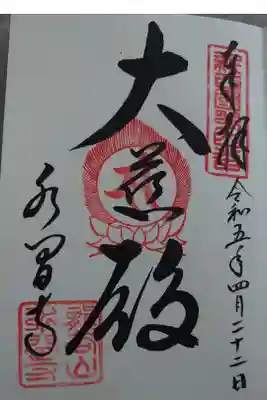 奉拝
令和五年四月二十二日
大慈殿
水間寺